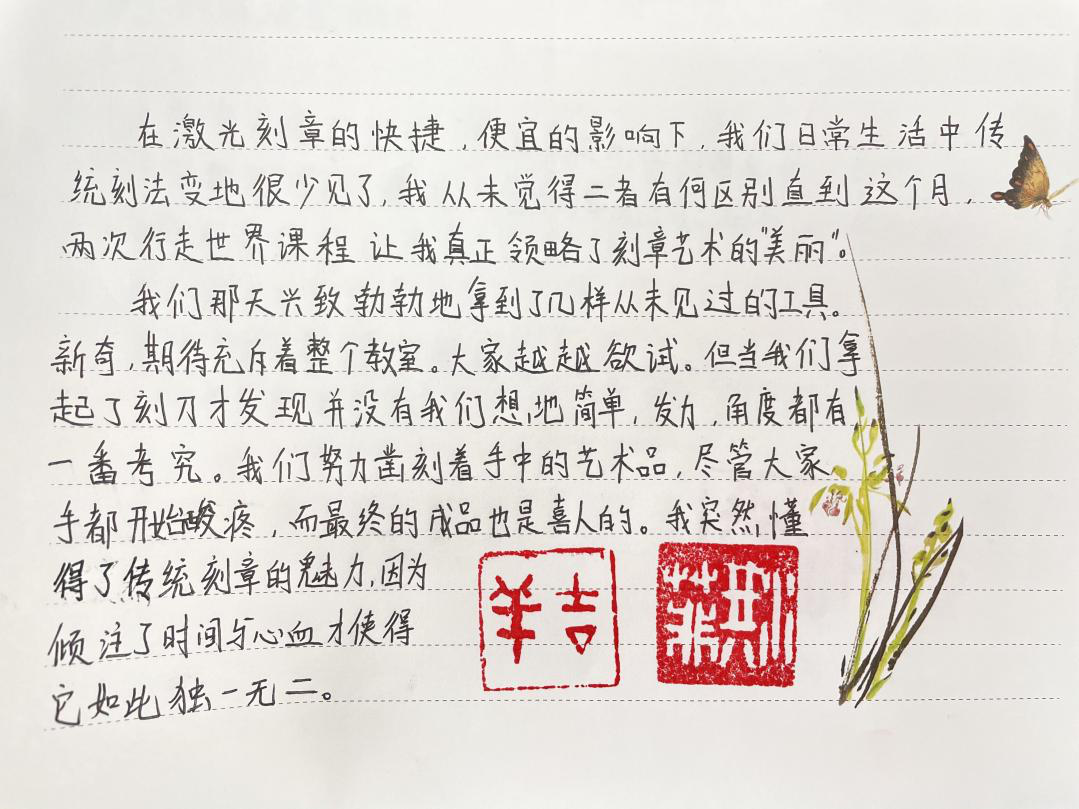 在激光刻章的快捷,便宜的影响下,我们日常生活中传
统刻法变地很少见了,我从未觉得二者有何区别直到这个月,
两次行走世界课程让我真正领略了刻章艺术的"美丽"。
我们那天兴致勃勃地拿到了几样从未见过的工具。
新奇,期待充斥着整个教室。大家越越欲试。但当我们拿
起了刻刀才发现并没有我们想地简单,发力,角度都有
一番考究。我们努力凿刻着手中的艺术品,尽管大家
手都开始酸疼,而最终的成品也是喜人的。我突然懂
得了传统刻章的魅力,因为
倾注了时间与心血才使得
它如此独一无二。
吉羊